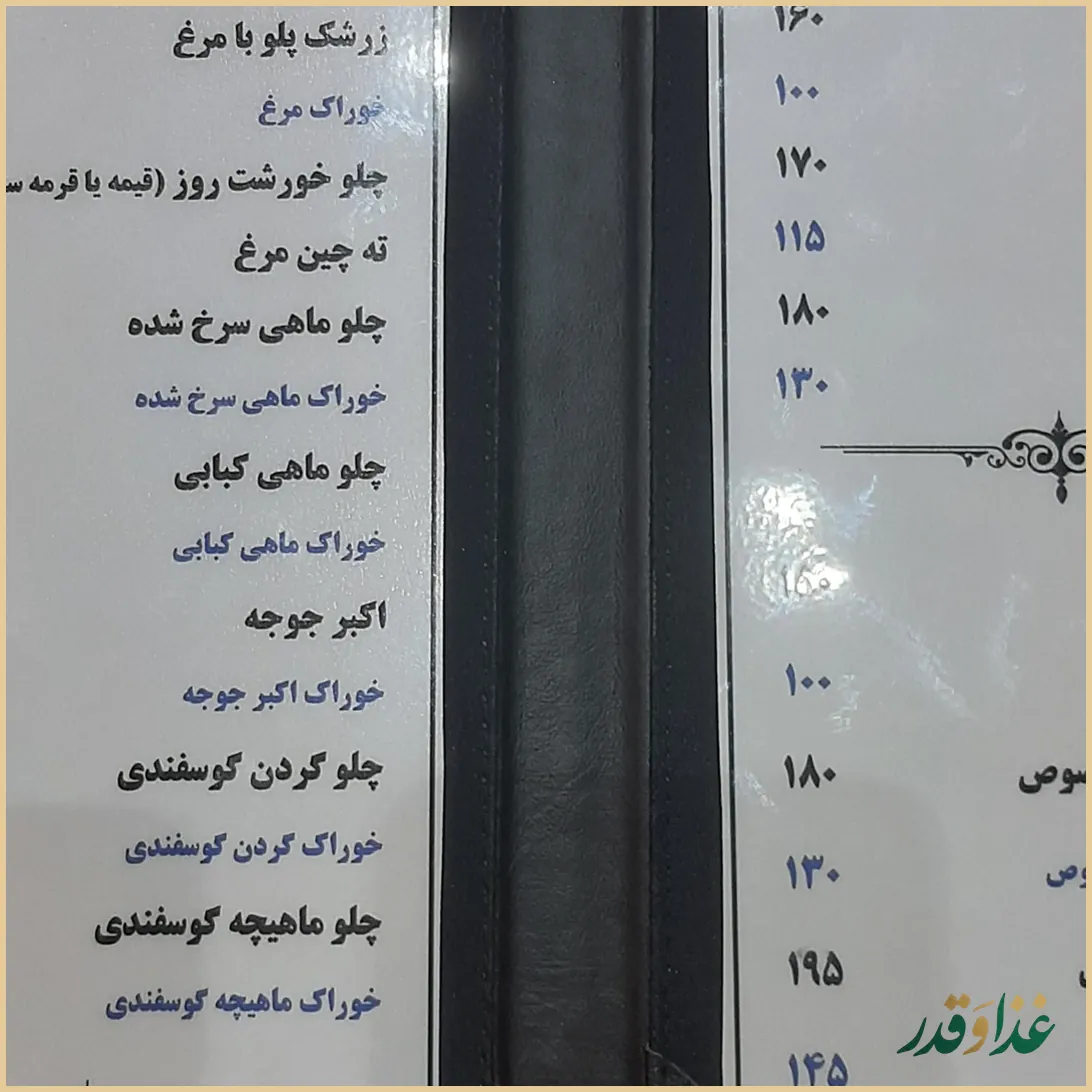 ۱۶۰
۱۰۰
۱۷۰
۱۱۵
۱۸۰
۱۳۰
۱۰۰
۱۸۰
۱۳۰
۱۹۵
۱۴۵
زرشک پلو با مرغ
خوراک مرغ
چلو خورشت روز (قیمه یا قرمه
ته چین مرغ
چلو ماهی سرخ شده
خوراک ماهی سرخ شده
چلو ماهی کبابی
خوراک ماهی کبابی
اکبر جوجه
خوراک اکبر جوجه
چلو گردن گوسفندی
خوراک گردن گوسفندی
چلو ماهیچه گوسفندی
خوراک ماهیچه گوسفندی
غذا و قدر